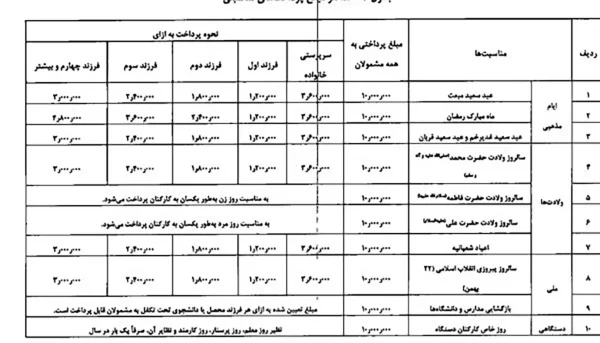 ردیف مناسبت‌ها مبلغ پرداختی به همه مشمولان نحوه پرداخت به ازای
سرپرستی خانواده فرزند اول فرزند دوم فرزند سوم فرزند چهارم و بیشتر
ایام مذهبی
۱ عید سعید مبعث ۱۰٫۰۰۰٫۰۰۰ ۳٫۶۰۰٫۰۰۰ ۱٫۲۰۰٫۰۰۰ ۱٫۸۰۰٫۰۰۰ ۲٫۴۰۰٫۰۰۰ ۳٫۰۰۰٫۰۰۰
۲ ماه مبارک رمضان ۱۰٫۰۰۰٫۰۰۰ ۳٫۶۰۰٫۰۰۰ ۱٫۲۰۰٫۰۰۰ ۱٫۸۰۰٫۰۰۰ ۳٫۶۰۰٫۰۰۰ ۴٫۸۰۰٫۰۰۰
۳ عید سعید غدیرخم و عید سعید قربان ۱۰٫۰۰۰٫۰۰۰ ۳٫۶۰۰٫۰۰۰ ۱٫۲۰۰٫۰۰۰ ۱٫۸۰۰٫۰۰۰ ۲٫۴۰۰٫۰۰۰ ۳٫۰۰۰٫۰۰۰
ولادت‌ها
۴ سالروز ولادت حضرت محمد ۱۰٫۰۰۰٫۰۰۰ ۳٫۶۰۰٫۰۰۰ ۱٫۲۰۰٫۰۰۰ ۱٫۸۰۰٫۰۰۰ ۲٫۴۰۰٫۰۰۰ ۳٫۰۰۰٫۰۰۰
۵ سالروز ولادت حضرت فاطمه ۱۰٫۰۰۰٫۰۰۰ به مناسبت روز زن به‌طور یکسان به کارکنان پرداخت می‌شود.
۶ سالروز ولادت حضرت علی ۱۰٫۰۰۰٫۰۰۰ به مناسبت روز مرد به‌طور یکسان به کارکنان پرداخت می‌شود.
۷ اعیاد شعبانیه ۱۰٫۰۰۰٫۰۰۰ ۳٫۶۰۰٫۰۰۰ ۱٫۲۰۰٫۰۰۰ ۱٫۸۰۰٫۰۰۰ ۲٫۴۰۰٫۰۰۰ ۳٫۰۰۰٫۰۰۰
ملی
۸ سالروز پیروزی انقلاب اسلامی (۲۲ بهمن) ۱۰٫۰۰۰٫۰۰۰ ۳٫۶۰۰٫۰۰۰ ۱٫۲۰۰٫۰۰۰ ۱٫۸۰۰٫۰۰۰ ۲٫۴۰۰٫۰۰۰ ۳٫۰۰۰٫۰۰۰
۹ بازگشایی مدارس و دانشگاه‌ها ۱۰٫۰۰۰٫۰۰۰ مبلغ تعیین شده به ازای هر فرزند محصل یا دانشجوی تحت تکفل به مشمولان قابل پرداخت است.
دستگاهی
۱۰ روز خاص کارکنان دستگاه ۱۰٫۰۰۰٫۰۰۰ نظیر روز معلم، روز پرستار، روز کارمند و نظایر آن، صرفاً یک بار در سال